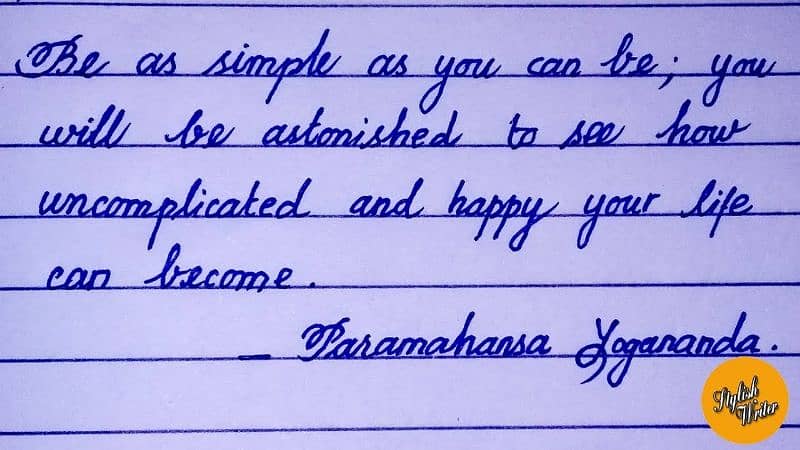 Be as simple as you can be; you
will be astonished to see how
uncomplicated and happy your life
can become.
_ Paramahansa Yogananda.
Stylish
Writer